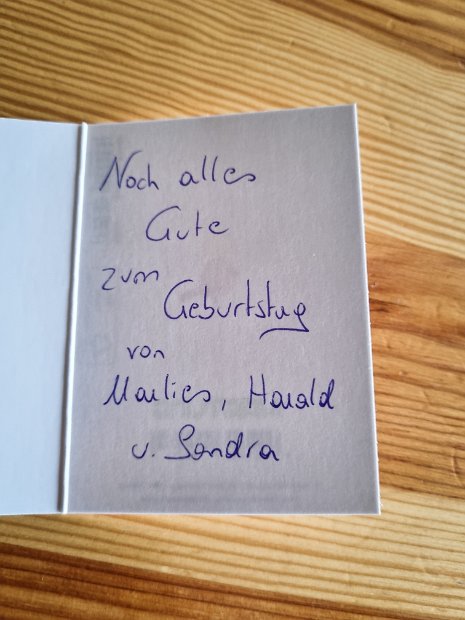 Noch alles
Gute
zum
Geburtstag
von
Marlies, Harald
u. Sandra